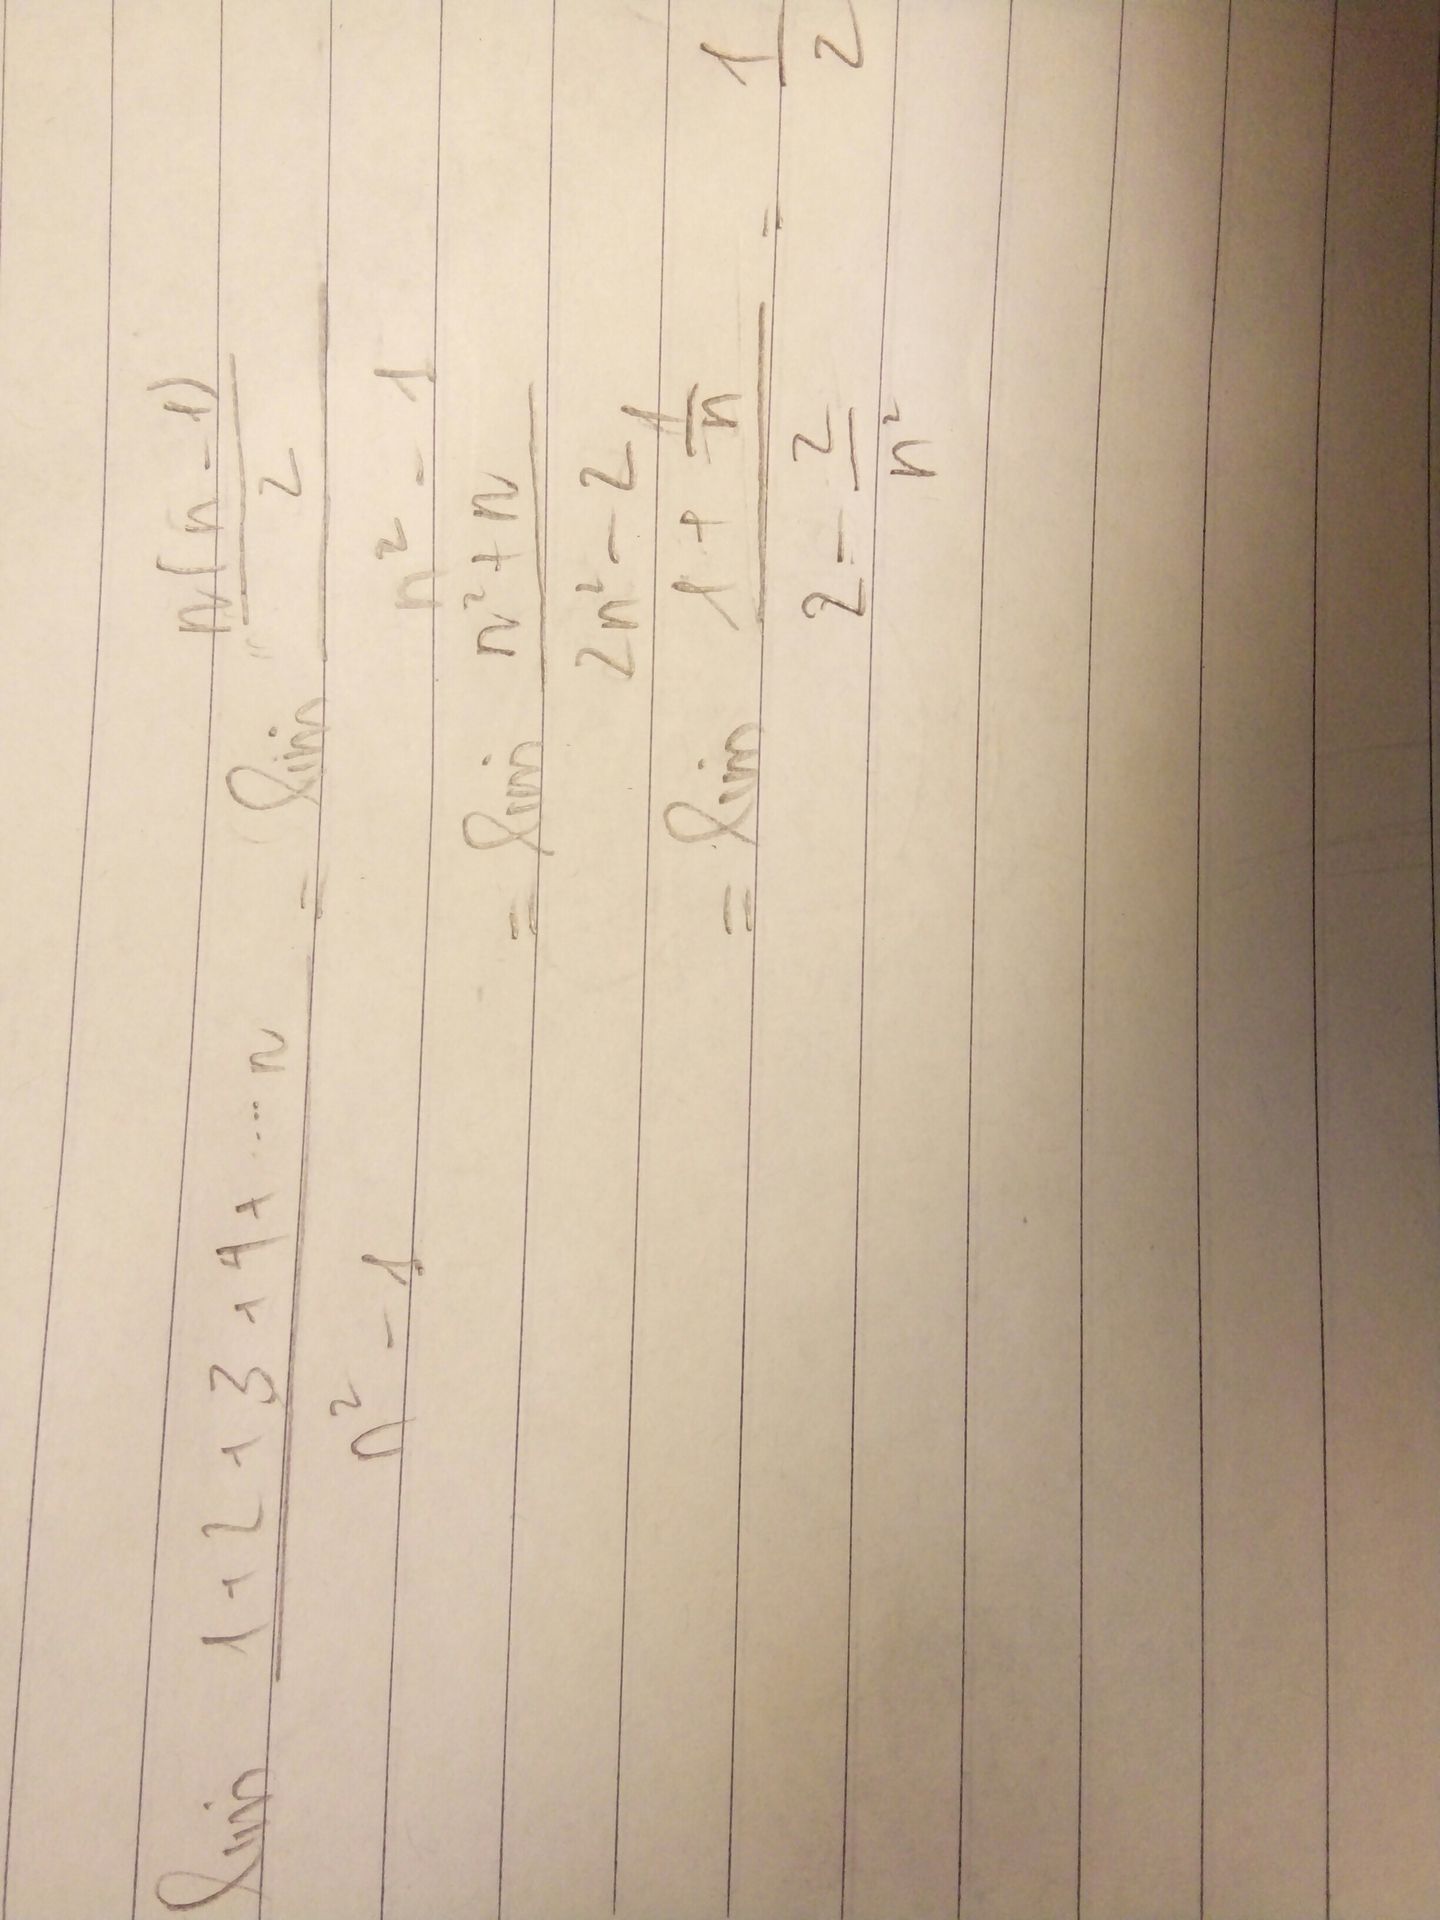 lim (1+2+3+4+....n)/(n² - 1) = lim (n(n-1)/2)/(n² - 1)
= lim (n²+n)/(2n²-2)
= lim (1 + 1/n)/(2 - 2/n²) = 1/2